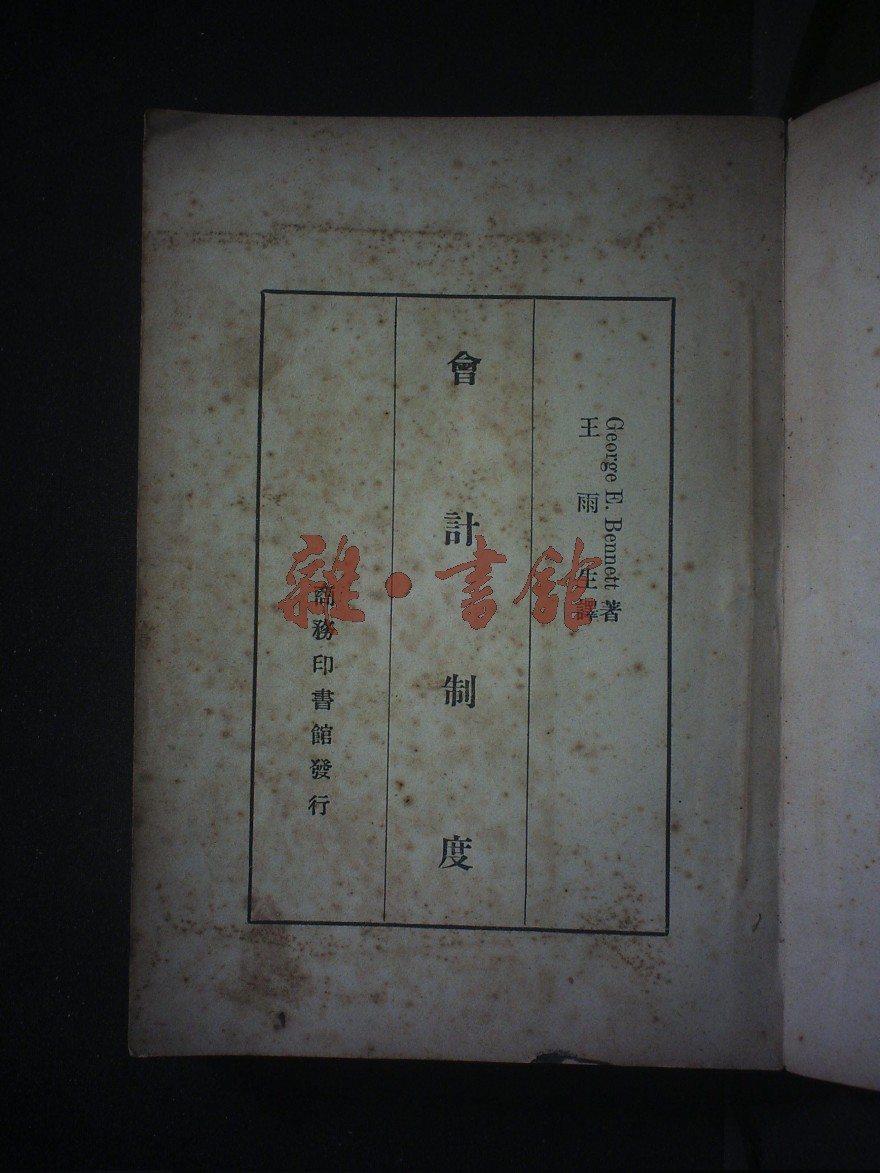 George E. Bennett 著
王雨生譯
會計制度
商務印書館發行
雜·書館